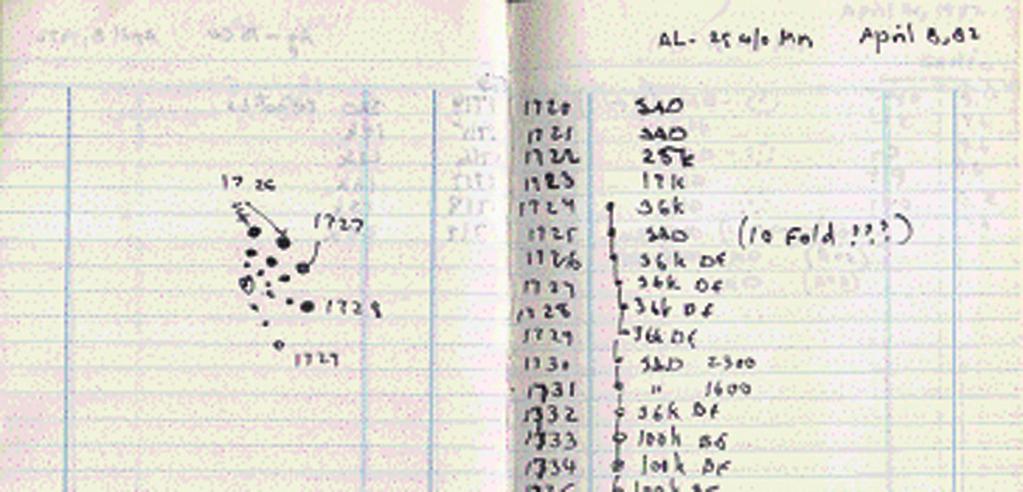 1726
1727
1728
1729
AL-25 w/o Mn April 8, 82
1720 SAD
1721 SAD
1722 25k
1723 17k
1724 36k
1725 SAD (10 Fold ???)
1726 36k DF
1727 36k DF
1728 36k DF
1729 36k DF
1730 SAD 2300
1731 " 1600
1732 36k DF
1733 100k DF
1734 100k DF